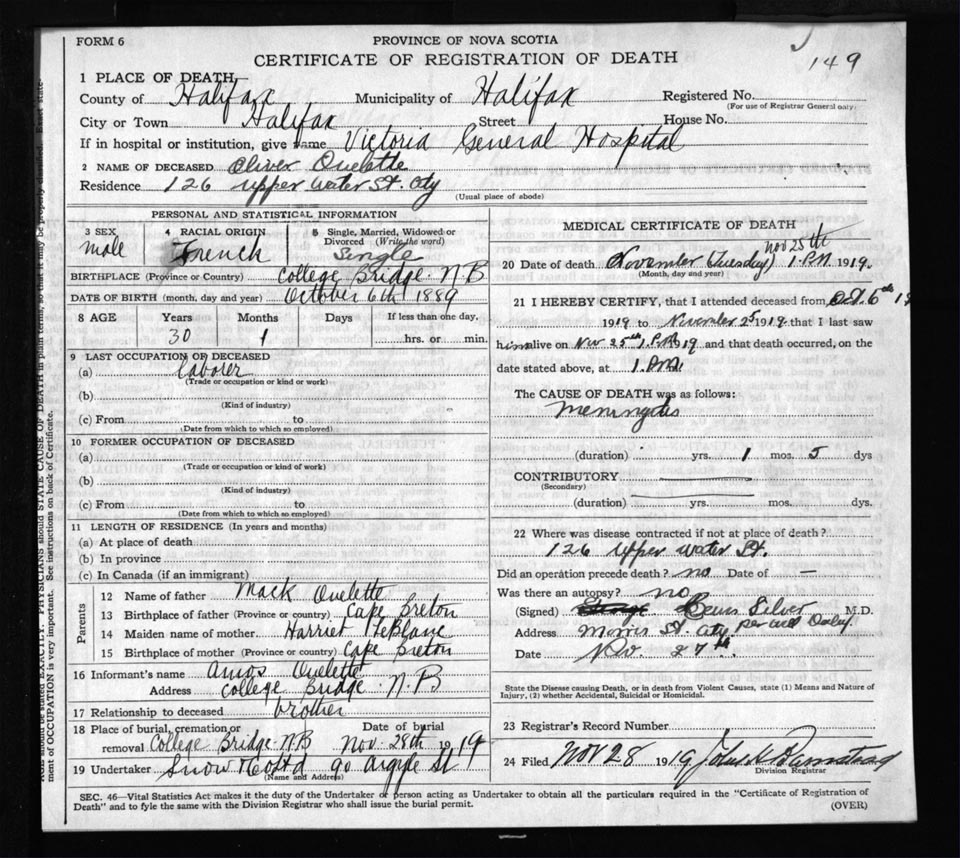 FORM 6
PROVINCE OF NOVA SCOTIA
149
CERTIFICATE OF REGISTRATION OF DEATH
1 PLACE OF DEATH—
County of Halifax Municipality of Halifax Registered No.
(For use of Registrar General only)
City or Town Halifax Street House No.
If in hospital or institution, give name Victoria General Hospital
2 NAME OF DECEASED Oliver Ouelette
Residence 126 Upper Water St. City
(Usual place of abode)
PERSONAL AND STATISTICAL INFORMATION
3 SEX
male
4 RACIAL ORIGIN
French
5 Single, Married, Widowed or Divorced (Write the word)
Single
BIRTHPLACE (Province or Country) College Bridge. N.B
DATE OF BIRTH (month, day and year) October 6th 1889
8 AGE Years Months Days If less than one day.
30 1 hrs. or min.
9 LAST OCCUPATION OF DECEASED
(a) laborer
(Trade or occupation or kind or work)
(b)
(Kind of industry)
(c) From to
(Date from which to which so employed)
10 FORMER OCCUPATION OF DECEASED
(a)
(Trade or occupation or kind or work)
(b)
(Kind of industry)
(c) From to
(Date from which to which so employed)
11 LENGTH OF RESIDENCE (In years and months)
(a) At place of death
(b) In province
(c) In Canada (if an immigrant)
Parents
12 Name of father Mack Ouelette
13 Birthplace of father (Province or country) Cape Breton
14 Maiden name of mother Harriet LeBlanc
15 Birthplace of mother (Province or country) Cape Breton
16 Informant's name Amos Ouelette
Address College Bridge N.B
17 Relationship to deceased brother
18 Place of burial, cremation or removal College Bridge N.B
Date of burial Nov 28th 1919
19 Undertaker Snow & Co Ltd 90 Argyle St
(Name and Address)
MEDICAL CERTIFICATE OF DEATH
Nov 25th
20 Date of death November (Tuesday) 1. P.M 1919.
(Month, day and year)
21 I HEREBY CERTIFY, that I attended deceased from Oct. 6th 19
1919 to November 25 1919 that I last saw
him alive on Nov 25th 1. P.M 1919 and that death occurred, on the
date stated above, at 1. P.M
The CAUSE OF DEATH was as follows:
Meningitis
(duration) yrs. 1 mos. 5 dys
CONTRIBUTORY
(Secondary)
(duration) yrs. mos. dys.
22 Where was disease contracted if not at place of death?
126 Upper Water St.
Did an operation precede death? no Date of —
Was there an autopsy? no
(Signed) Silver M.D.
Address Morris St. City
Date Nov 27th
State the Disease causing Death, or in death from Violent Causes, state (1) Means and Nature of
Injury, (2) whether Accidental, Suicidal or Homicidal.
23 Registrar's Record Number
24 Filed NOV 28 1919
Division Registrar
SEC. 46—Vital Statistics Act makes it duty of the Undertaker or person acting as Undertaker to obtain all the particulars required in the "Certificate of Registration of
Death" and to fyle the same with the Division Registrar who shall issue the burial permit.
(OVER)